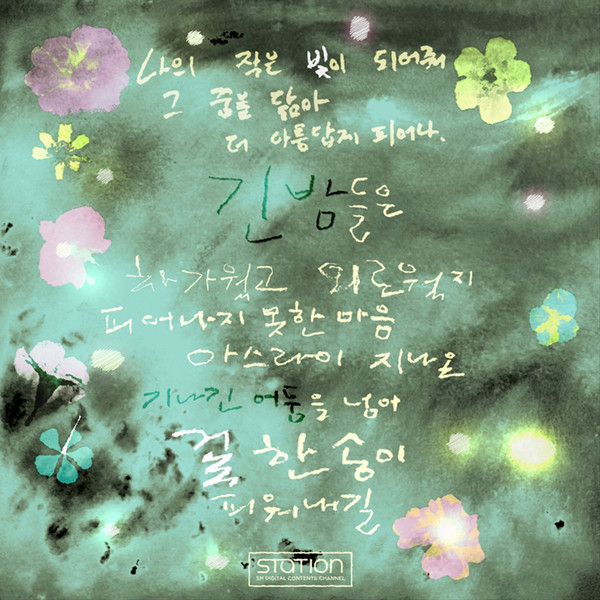 나의 작은 빛이 되어줘
그 닮아
더 아름답게 피어나.
긴 밤들은
차가웠고 외로웠지
피어나지 못한 마음
아스라이 지나온
기나긴 어둠을 넘어
꽃 한 송이
피워내길
STATION
SM DIGITAL CONTENTS CHANNEL